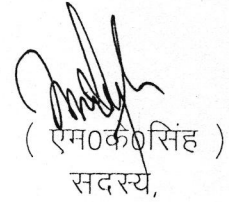 ( एम0के0सिंह )
सदस्य,